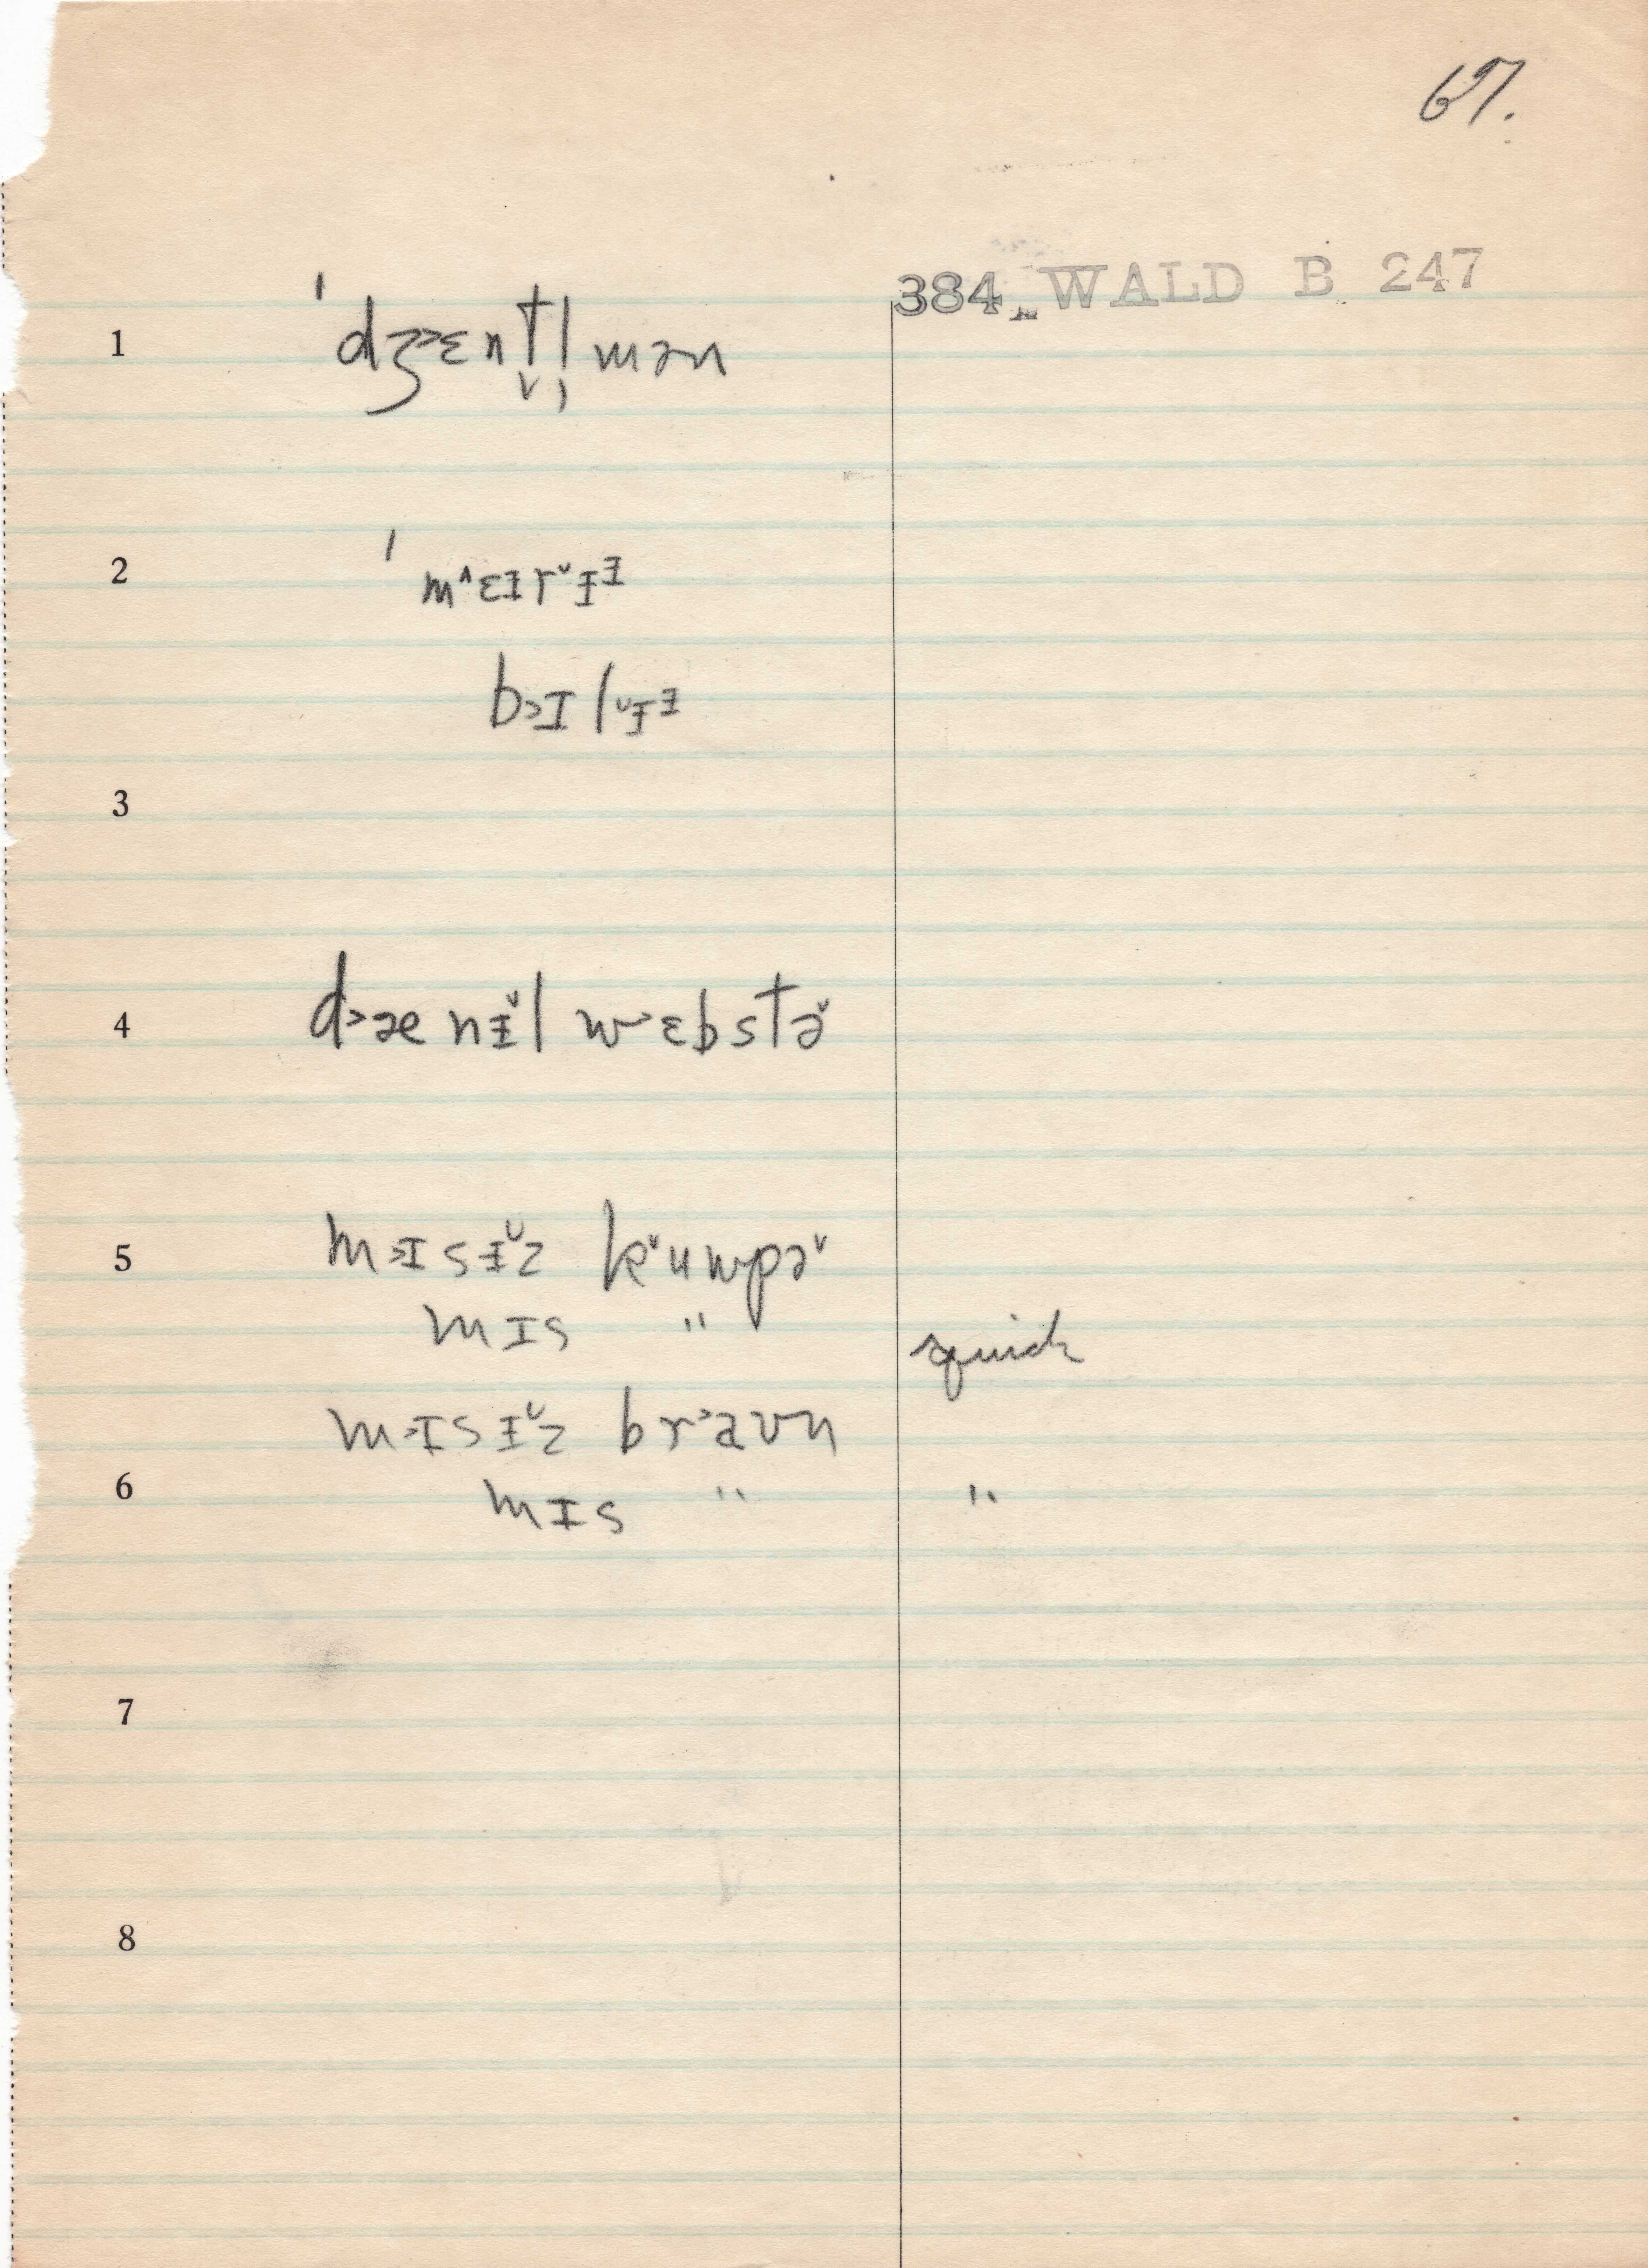 67.
384 WALD B 247
1 ˈdʒ˃ɛnt̬l̩mən
2 ˈm˄ɛɪr˅ɪᶤ
b˃ɪl˅ɪᶤ
3
4 d˃ænɨ̆l w˃ɛbstə˅
5 m˃ɪsɨ̆z k˅umpə˅
mɪs "
quick
m˃ɪsɨ̆z br˃aʊn
6 mɪs " "
7
8